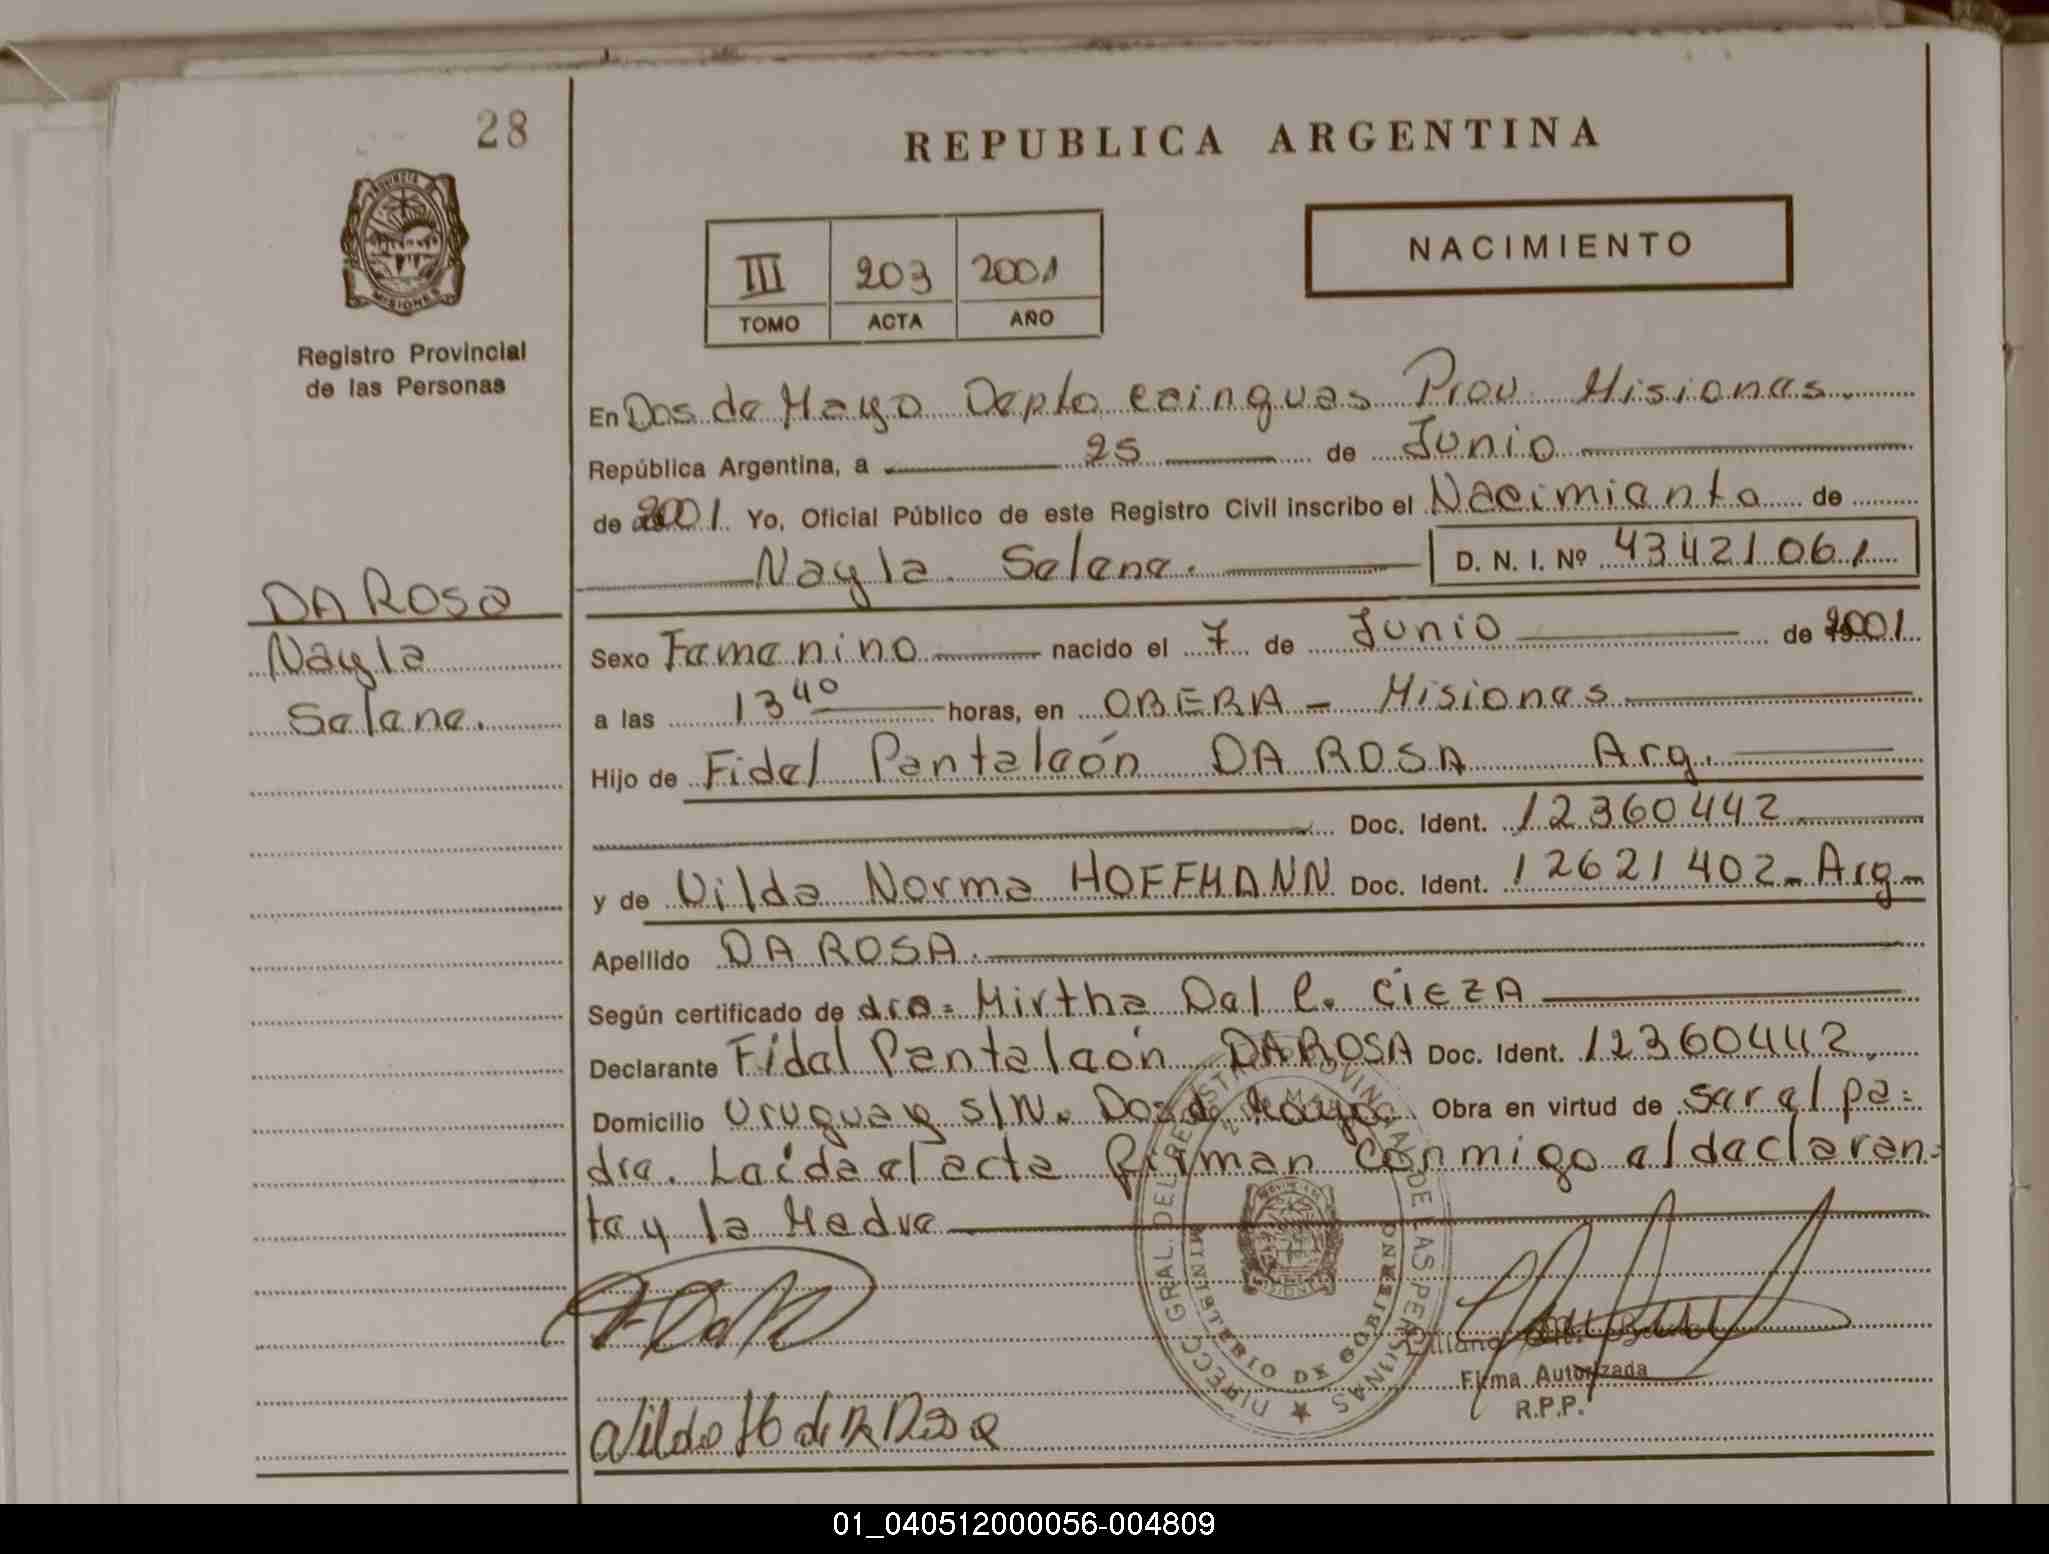 28
REPUBLICA ARGENTINA
PROVINCIA DE
MISIONES
Registro Provincial
de las Personas
III 203 2001
TOMO ACTA AÑO
NACIMIENTO
En Dos de Mayo Depto Cainguas Prov. Misiones.
República Argentina, a 25 de Junio
de 2001. Yo, Oficial Público de este Registro Civil inscribo el Nacimiento de
Nayla Selene. D. N. I. Nº 43421061
DA ROSa
Nayla
Selene.
Sexo Femenino nacido el 7 de Junio de 2001
a las 13 40 horas, en OBERA - Misiones
Hijo de Fidel Pantaleón DA ROSA Arg.
Doc. Ident. 12360442
y de Vilda Norma HOFFMANN Doc. Ident. 12621402 - Arg -
Apellido DA ROSA.
Según certificado de dra: Mirtha Del C. CIEZA
Declarante Fidel Pantaleón DA ROSA Doc. Ident. 12360442.
Domicilio Uruguay S/N. Dos de Mayo Obra en virtud de ser el pa=
dre. Leída el acta firman conmigo el declaran=
te y la Madre
DIRECC. GRAL. DEL REGISTRO PROVINCIAL DE LAS PERSONAS
MINISTERIO DE GOBIERNO
Firma Autorizada
R.P.P.
01_040512000056-004809